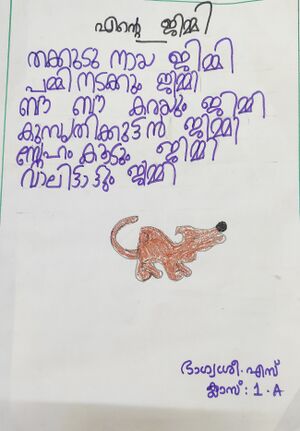 എന്റെ ജിമ്മി
തക്കുടു നായ ജിമ്മി
പമ്മി നടക്കും ജിമ്മി
ബൗ ബൗ കുരയും ജിമ്മി
കുസൃതിക്കുട്ടൻ ജിമ്മി
സ്നേഹം കൂടും ജിമ്മി
വാലിട്ടാട്ടും ജിമ്മി
ഭാഗ്യശ്രീ.എസ്
ക്ലാസ് : 1.A